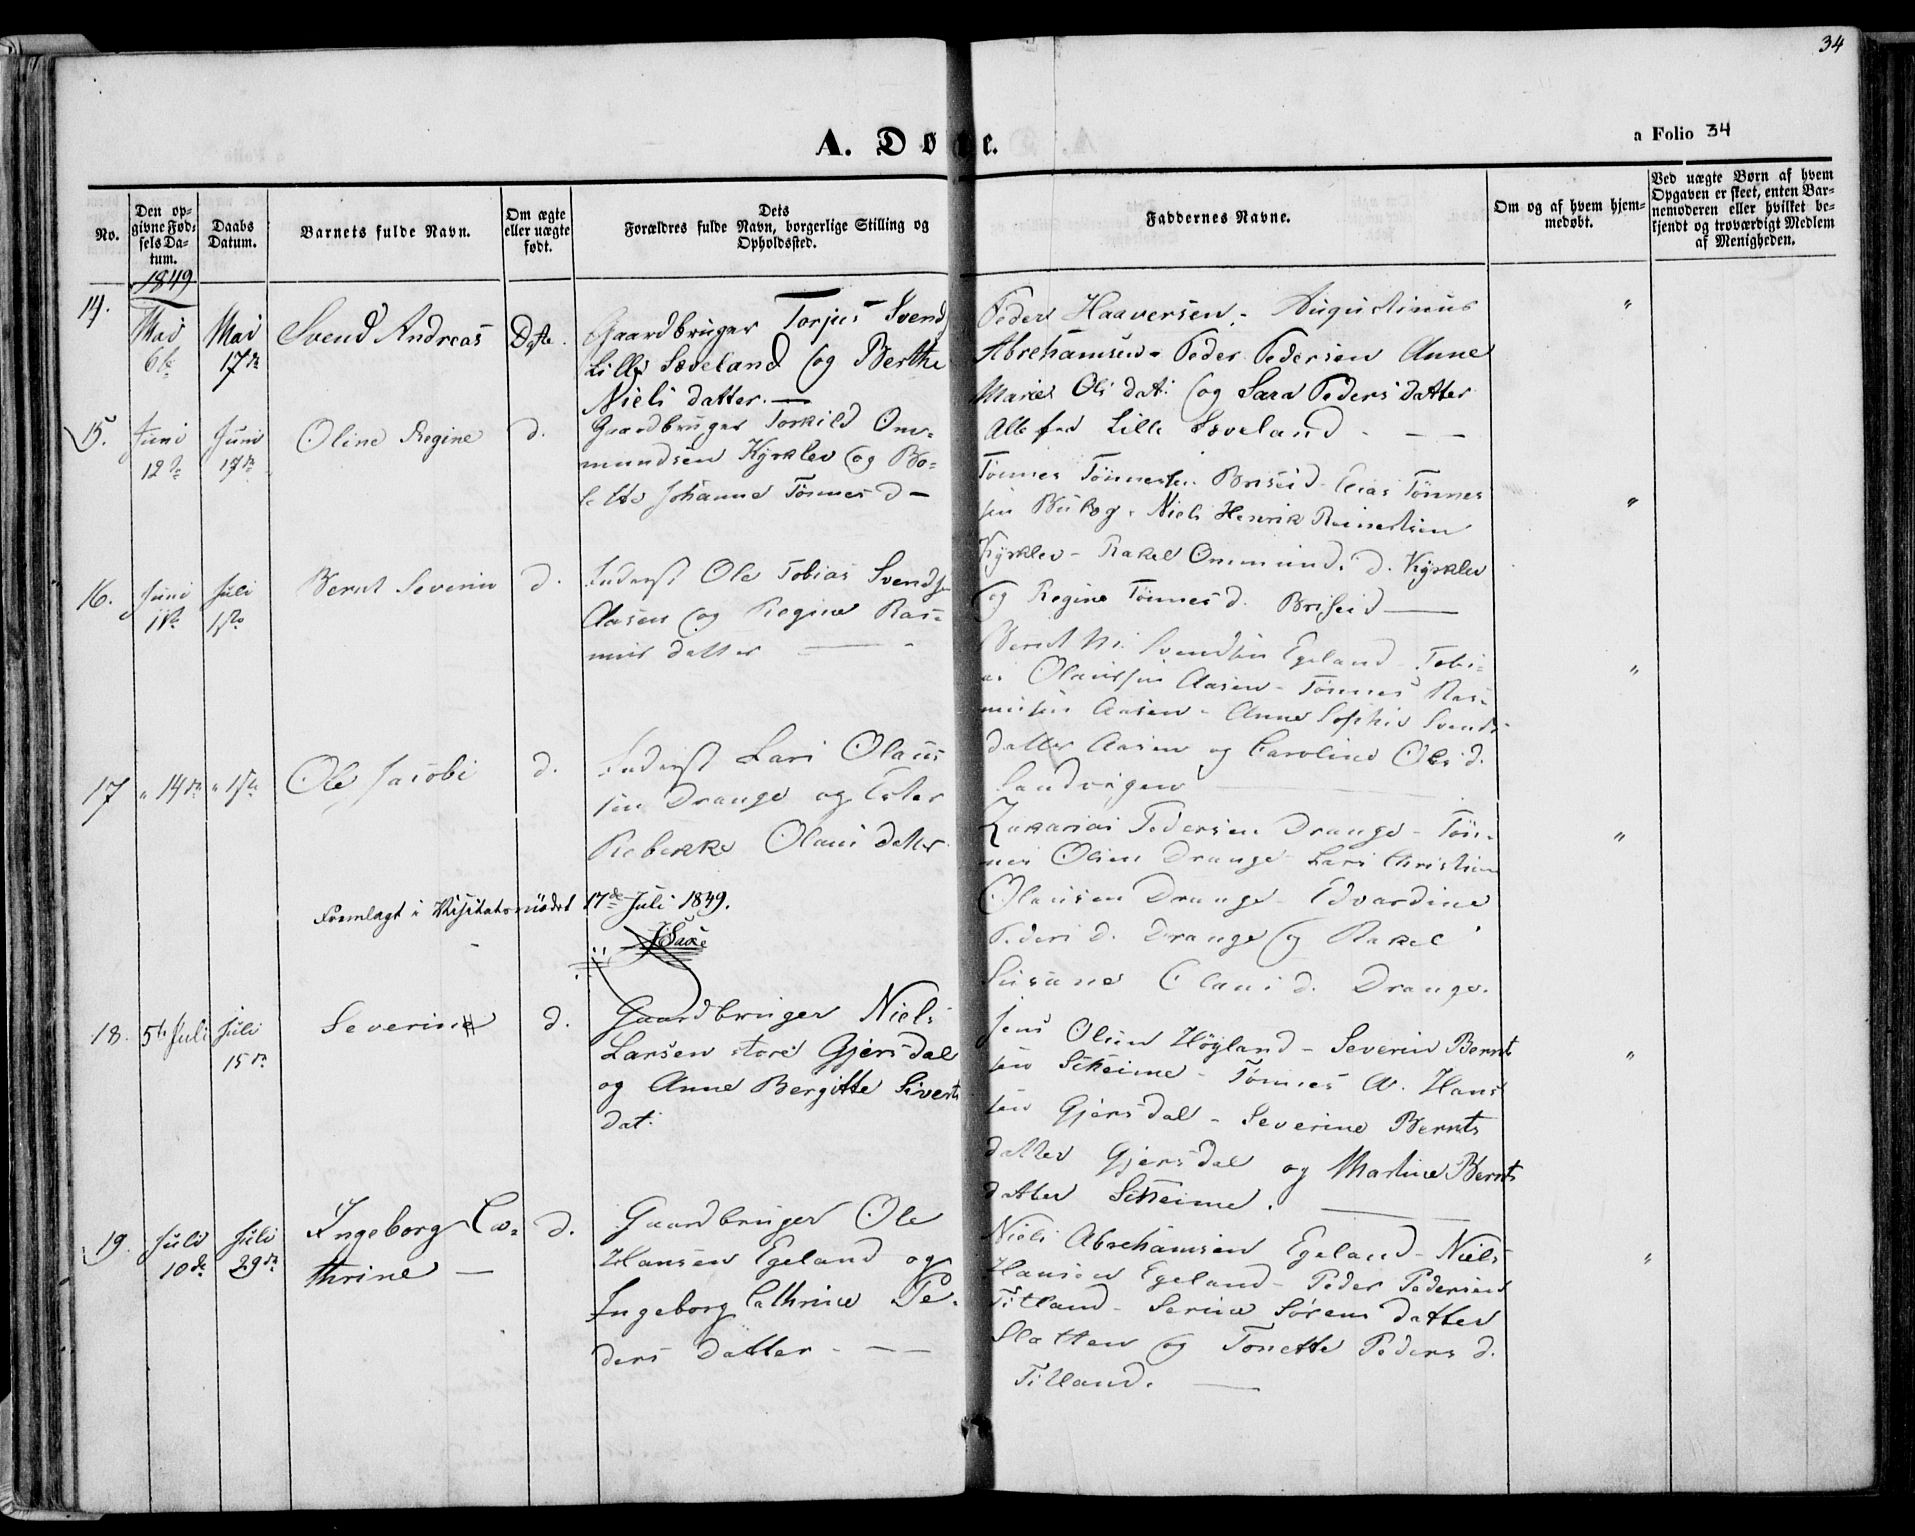 34
A. Døbte.
a Folio 34
No.
Den op-
givne Fød-
sels Da-
tum.
Daabs
Datum.
Barnets fulde Navn.
Om ægte
eller uægte
født.
Dets
Forældres fulde Navn, borgerlige Stilling og
Opholdssted.
Faddernes Navne.
Om og af hvem hjem-
medøbt.
Ved uægte Børn af hvem
Opgaven er skeet, enten Bar-
nemoderen eller hvilket be-
kjendt og troværdigt Medlem
af Menigheden.
1849
14.
Mai
6te
Mai
17de
Svend Andreas
Gaardbruger Torjus Svends
Lille Sæveland og Berthe
Niels datter. —
Peder Haaversen - Augustinus
Abrehamsen - Peder Pedersen Anne
Marie Ols dat. og Sara Peders datter
Alle fra Lille Sæveland - — —
"
15.
Juni
12te
Juni
17de
Oline Regine
d.
Gaardbruger Torkild Om-
mundsen Kjerklev og Bo-
lette Johanne Tønnes d —
Tønnes Tønnessen Briseid - Elias Tønnes
sen - Niels Henrik Reinertsen
Kyrklev - Rakel Ommunds d. Kyrklev
og Regine Tønnes d. Briseid —
"
16.
Juni
Juli
1ste
Bernt Severin
d.
Inderst Ole Tobias Svends
Aasen og Regine Ras-
mus datter —
Bernt Svendsen Egeland - Tobi-
as Olaussen Aasen - Tønnes Ras-
mussen Aasen - Anne Sophie Svends
datter Aasen og Caroline Ols d.
Sandvigen —
"
17
" 14de
" 1ste
Ole Jacobi
d.
Inderst Lars Olaus
sen Drange og Ester
Rebekke Olaus datter
Zakarias Pedersen Drange - Tøn-
nes Olsen Drange - Lars Christian
Olausen Drange - Edvardine
Peders d. Drange og Rakel
Susane Olaus d. Drange.
"
Fremlagt i Visitatsmødet 17de Juli 1849.
18.
5te Juli
Juli
15de
Severin
d.
Gaardbruger Niels
Larsen store Gjersdal
og Anne Bergitte Siverts
dat.
Jens Olsen Høyland - Severin Bernt
sen Skeime - Tønnes A. Hans
sen Gjersdal - Severine Bernts
datter Gjersdal og Martine Bernts
datter Skeime. —
"
19.
Juli
10de
Juli
29de
Ingeborg Ca-
thrine —
d.
Gaardbruger Ole
Hansen Egeland og
Ingeborg Cathrine Pe-
ders datter - — —
Niels Abrehamsen Egeland - Niels
Hansen Egeland - Peder Pedersen
Titland - Serine Sørens datter
Slotten og Tonette Peders d.
Titland. —
"